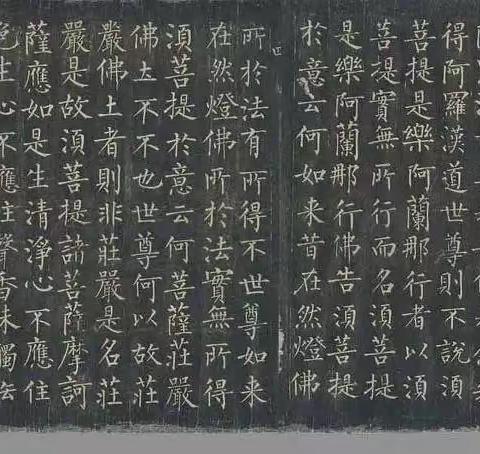 得阿羅漢道世尊則不說須
菩提是樂阿蘭那行者以須
菩提實無所行而名須菩提
是樂阿蘭那行佛告須菩提
於意云何如来昔在然燈佛
所於法有所得不世尊如来
在然燈佛所於法實無所得
須菩提於意云何菩薩莊嚴
佛土不不也世尊何以故莊
嚴佛土者則非莊嚴是名莊
嚴是故須菩提諸菩薩摩訶
薩應如是生清淨心不應住
色生心不應住聲香味觸法